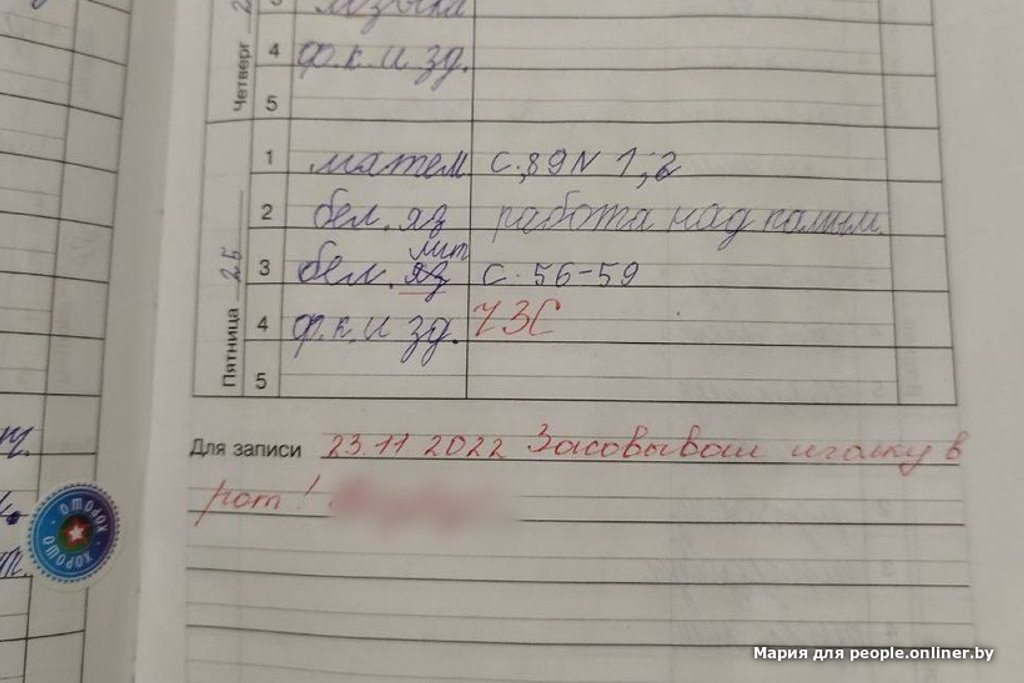 Четверг
3 музыка
4 ф.к. и зд.
5
Пятница 25
1 матем с. 89 N 1, 2
2 бел. яз работа над
лит
3 бел. яз с. 56-59
4 ф.к. и зд. ЧЗС
5
Для записи 23.11 2022 Засовывал иголку в
рот!
ХОРОШО · ХОРОШО ·
Мария для people.onliner.by